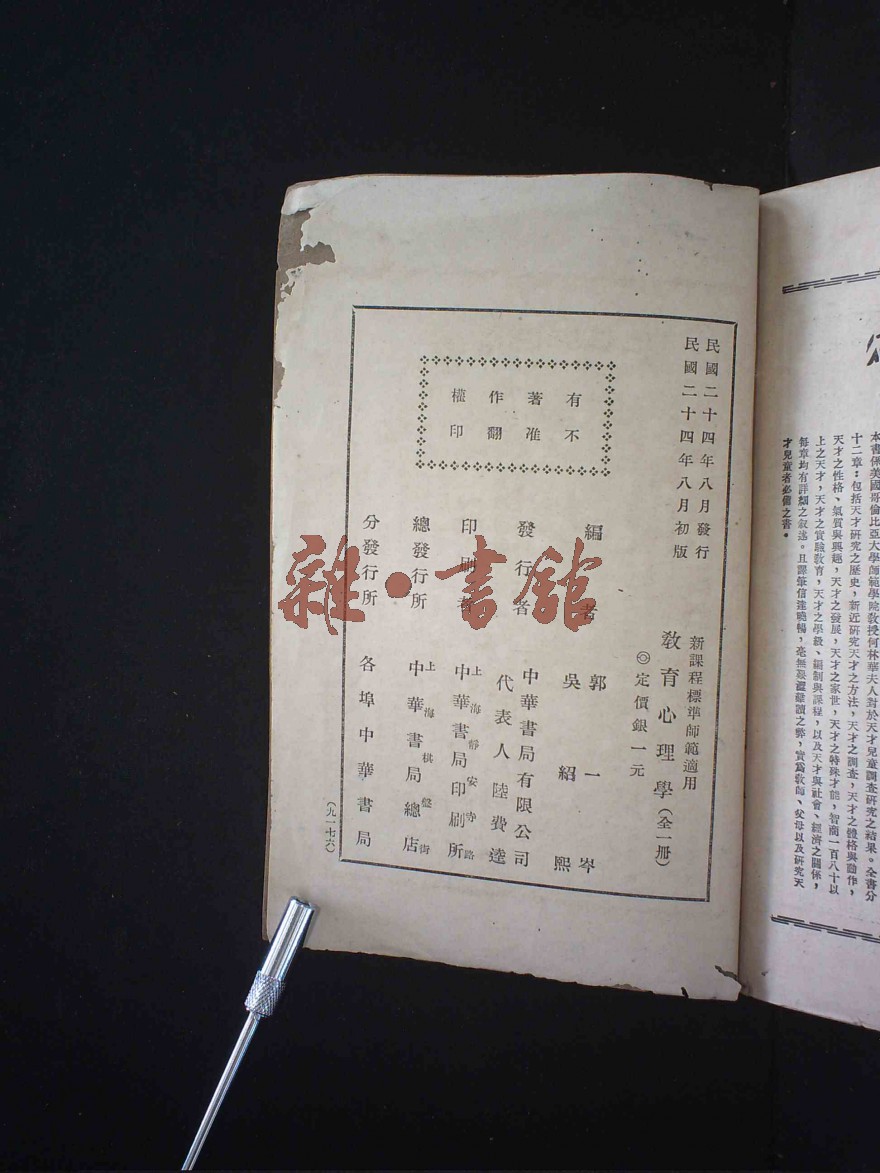 本書係美國哥倫比亞大學師範學院敎授何林華夫人對於天才兒童調查研究之結果。全書分
十二章：包括天才研究之歷史，新近研究天才之方法，天才之調查，天才之體格與動作，
天才之性格、氣質與興趣，天才之發展，天才之家世，天才之特殊才能，智商一百八十以
上之天才，天才之實驗敎育，天才之學級、編制與課程，以及天才與社會、經濟之關係，
每章均有詳細之叙述。且譯筆信達曉暢，毫無艱澀難讀之弊，實爲敎師、父母以及研究天
才兒童者必備之書。
民國二十四年八月發行
民國二十四年八月初版
有不
著准
作翻
權印
新課程標準師範適用
敎育心理學（全一冊）
◎定價銀一元
編者
郭一岑
吳紹熙
發行者
中華書局有限公司
代表人陸費逵
印刷者
上海靜安寺路
中華書局印刷所
總發行所
上海棋盤街
中華書局總店
分發行所
各埠中華書局
（九一七六）
雜·書館